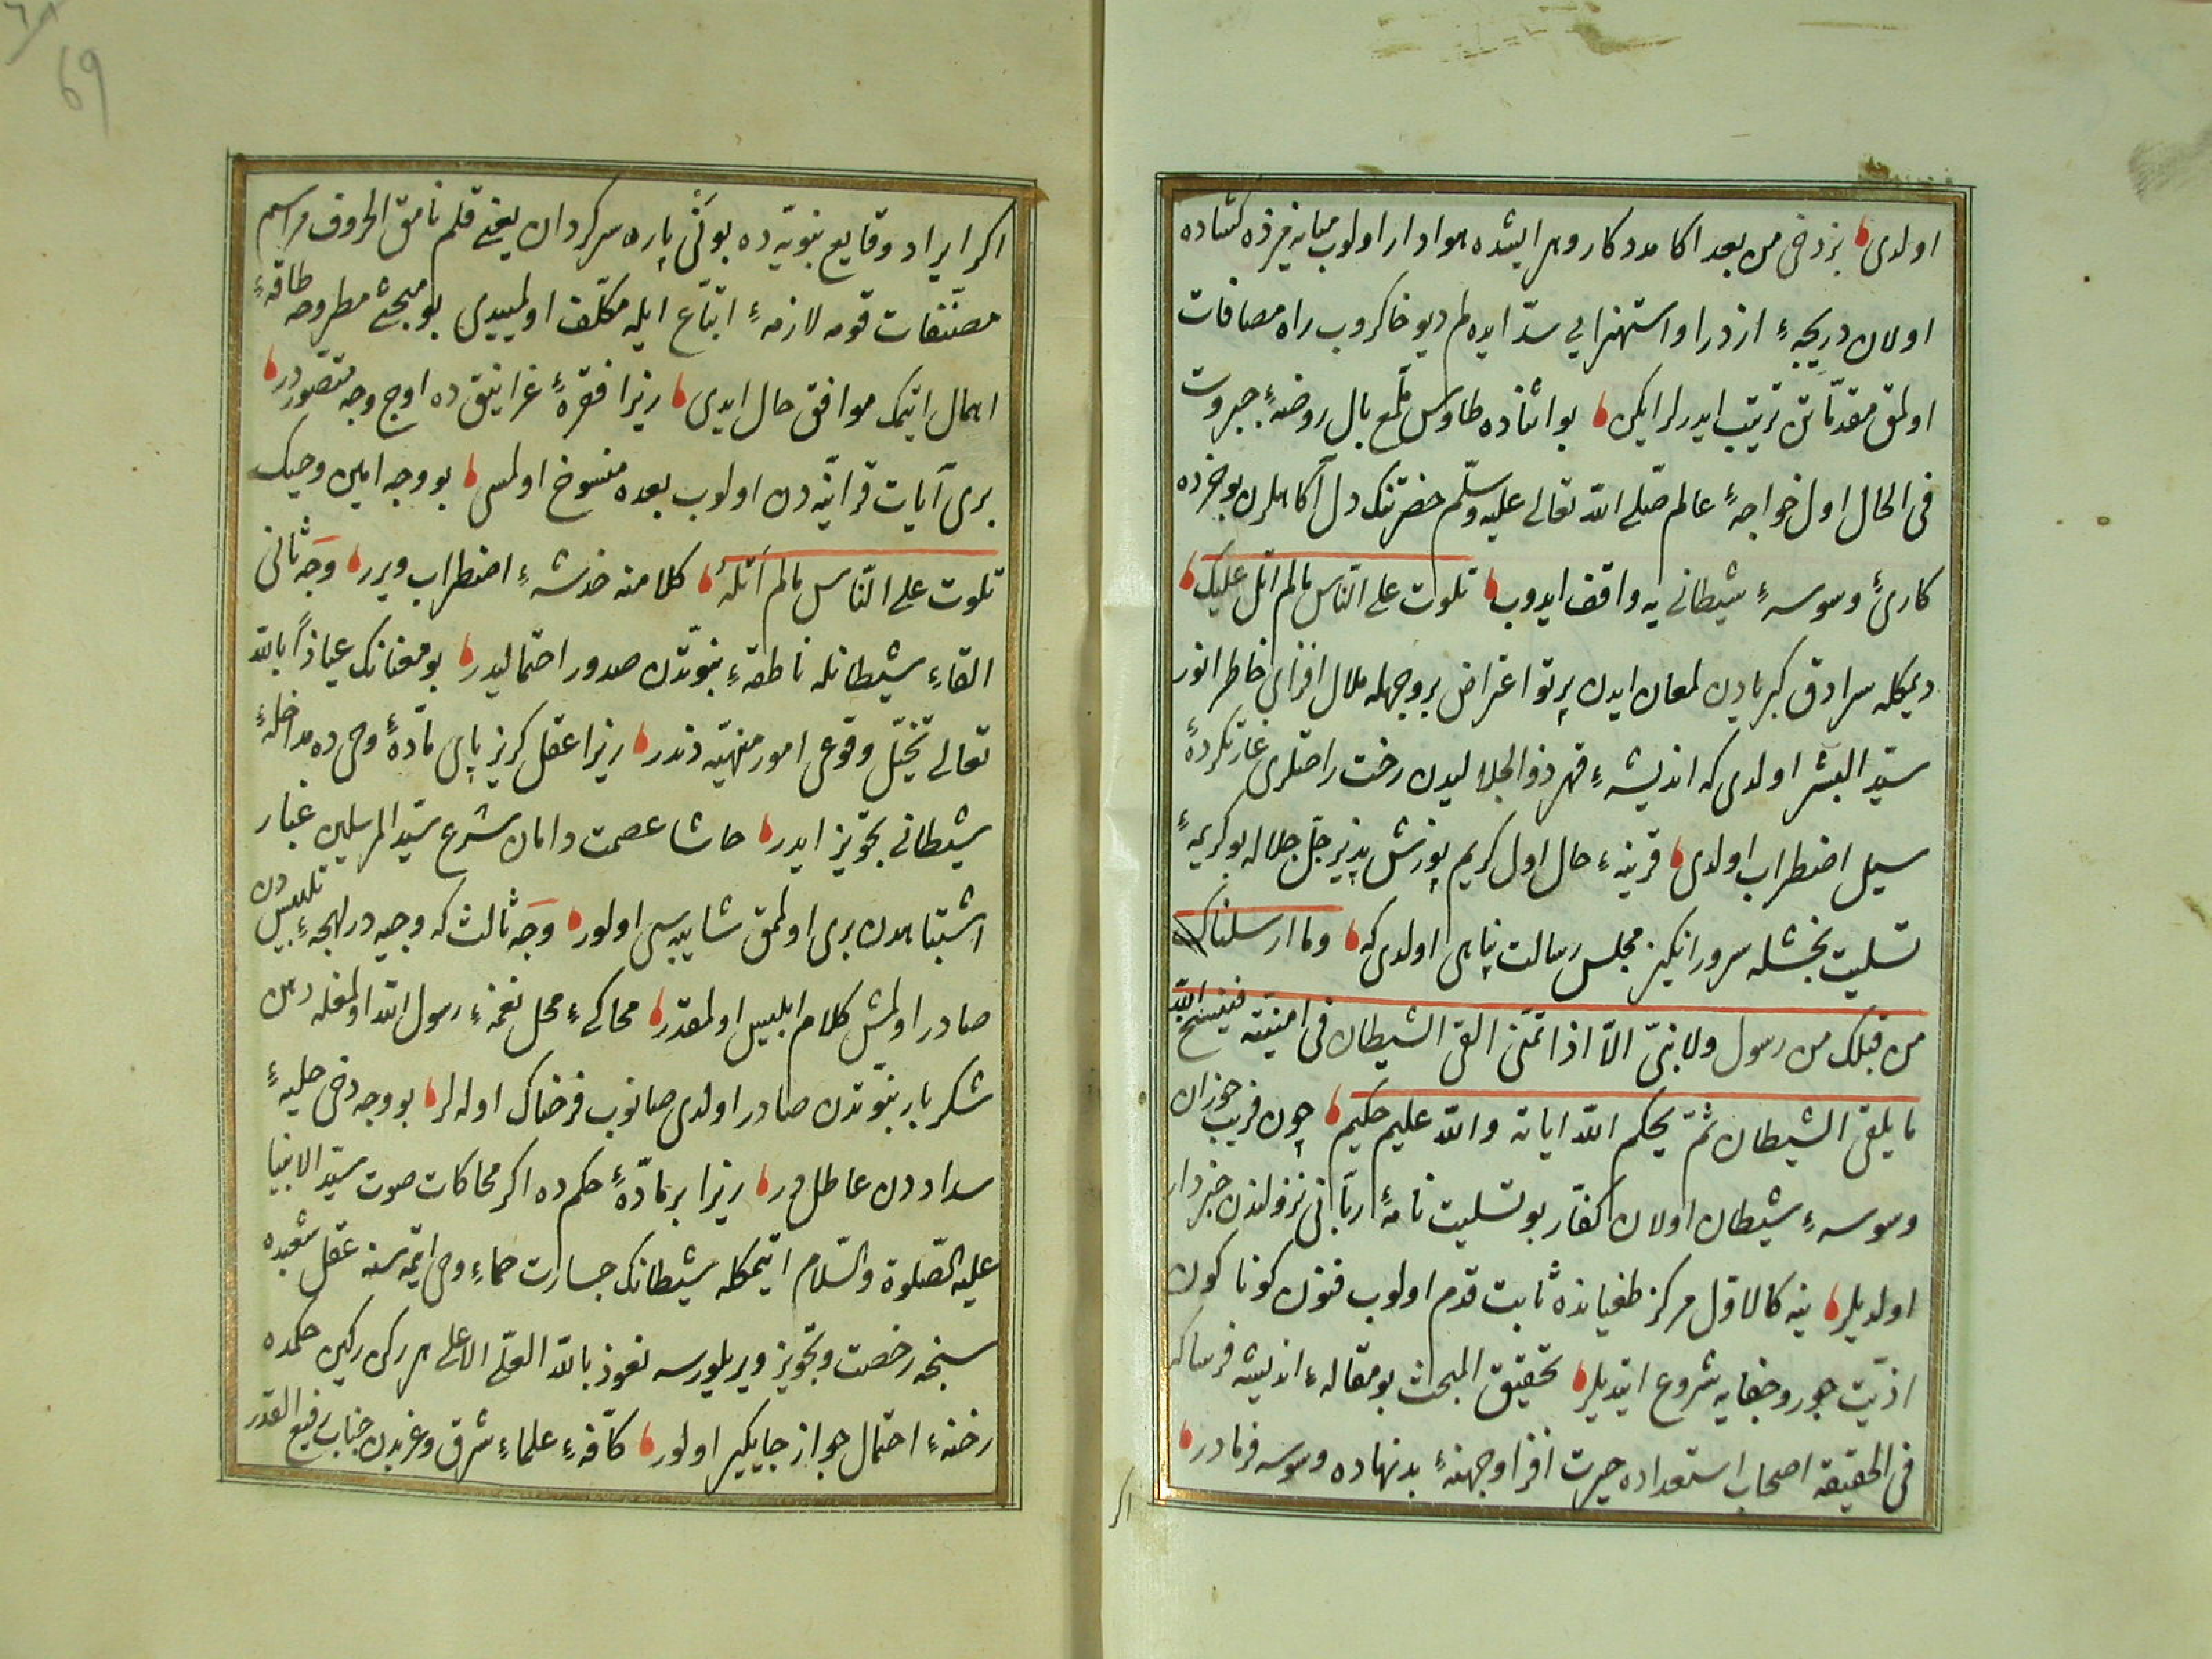 اولدی بز دخی من بعد اكا مددكار و هر ایشده هوادار اولوب میانه مزده كشاده
اولان دریچهٔ ازدرا و استهزایی سدّ ایده لم دیو خاكروب راه مصافات
اولمق مقدّماتن ترتیب ایدرلر ایكن بو اثناده طاوس ملمّع بال روضهٔ جبروت
فی الحال اول خواجهٔ عالم صلّی الله تعالی علیه وسلّم حضرتنك دل آكاهلرن بو خرده
كارئ وسوسهٔ شیطانی یه واقف ایدوب تلوت علی النّاس مالم اتل علیك
دیمكله سرادق كبریادن لمعان ایدن پرتو اعتراض بر وجهله ملال افزای خاطر انور
سیّد البشر اولدی كه اندیشهٔ قهر ذوالجلالیدن رخت راحتلری غارتكردهٔ
سیل اضطراب اولدی قرینهٔ حال اول كریم پوزش پذیر جلّ جلاله بو كریمهٔ
تسلیت بخشله سرور انكیز مجلس رسالت پناهی اولدی كه وما ارسلناك
من قبلك من رسول ولا نبیّ الاّ اذا تمنّی القی الشیطان فی امنیّته فینسخ الله
ما یلقی الشیطان ثمّ یحكم الله ایاته والله علیم حكیم چون فریب خوران
وسوسهٔ شیطان اولان كفّار بو تسلیت نامهٔ ربّانی نزولندن خبردار
اولدیلر ینه كالاوّل مركز طغیانده ثابت قدم اولوب فنون كوناكون
اذیّت جور و جفایه شروع ایتدیلر تحقیق المبحث بو مقالهٔ اندیشه فرسا كه
فی الحقیقه اصحاب استعداده حیرت افزا و جهنهٔ بدنهاده وسوسه فرمادر
اكر
69
اكر ایراد وقایع نبویّه ده بو كنی پاره سركردان یعنی قلم نامق الحروف مراسم
مصنّفات قومه لازمهٔ اتباع ایله مكلّف اولمییدی بو مبحثی مطروحه طاقهٔ
اهمال ایتمك موافق حال ایدی زیرا فقرهٔ غرانیق ده اوج وجه متصوّردر
بری آیات قرآنیّه دن اولوب بعده منسوخ اولمسی بو وجه امین وحیك
تلوت علی النّاس مالم اتله كلامنه خدشهٔ اضطراب ویرر وجه ثانی
القاء شیطانله ناطقهٔ نبوّتدن صدور احتمالیدر بو معنانك عیاذاً بالله
تعالی تخیّل وقوعی امور منهیّه دندر زیرا عقل كریز پای مادّهٔ وحی ده مداخلهٔ
شیطانی تجویز ایدر حاشا عصمت دامان شرع سیّد المرسلین غبار
اشتباهدن بری اولمق شایبه سی اولور وجه ثالث كه وجیه در لهجهٔ تلبیس دن
صادر اولمش كلام ابلیس اولمقدر محاكیٔ محل نغمهٔ رسول الله اولمغله دهن
شكربار نبوّتدن صادر اولدی صانوب فرحناك اوله لر بو وجه دخی حلیهٔ
سداددن عاطل در زیرا بر مادّهٔ حكم ده اكر محاكات صوت سیّد الانبیا
علیه الصّلوة والسّلام ایتمكله شیطانك جسارت حماء وحی ایتمه سنه عقل شعبده
سنجه رخصت و تجویز ویریلورسه نعوذ بالله العلیّ الاعلی هر ركن ركین حكمده
رخنهٔ احتمال جواز جایكیر اولور كافّهٔ علماء شرق و غربدن جناب رفیع القدر